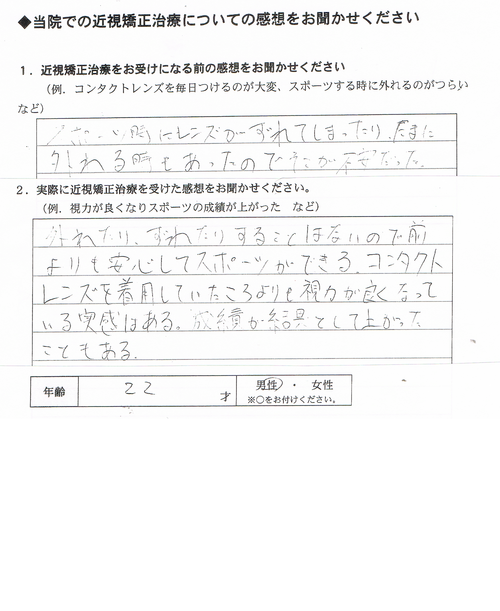 ◆当院での近視矯正治療についての感想をお聞かせください
１．近視矯正治療をお受けになる前の感想をお聞かせください
（例．コンタクトレンズを毎日つけるのが大変、スポーツする時に外れるのがつらい
など）
スポーツ時にレンズがずれてしまったり、たまに
外れる時もあったのでそこが不安だった。
２．実際に近視矯正治療を受けた感想をお聞かせください。
（例．視力が良くなりスポーツの成績が上がった　など）
外れたり、ずれたりすることはないので前
よりも安心してスポーツができる。コンタクト
レンズを着用していたころよりも視力が良くなって
いる実感はある。成績が結果として上がった
こともある。
年齢　22　才　男性・女性
※○をお付けください。